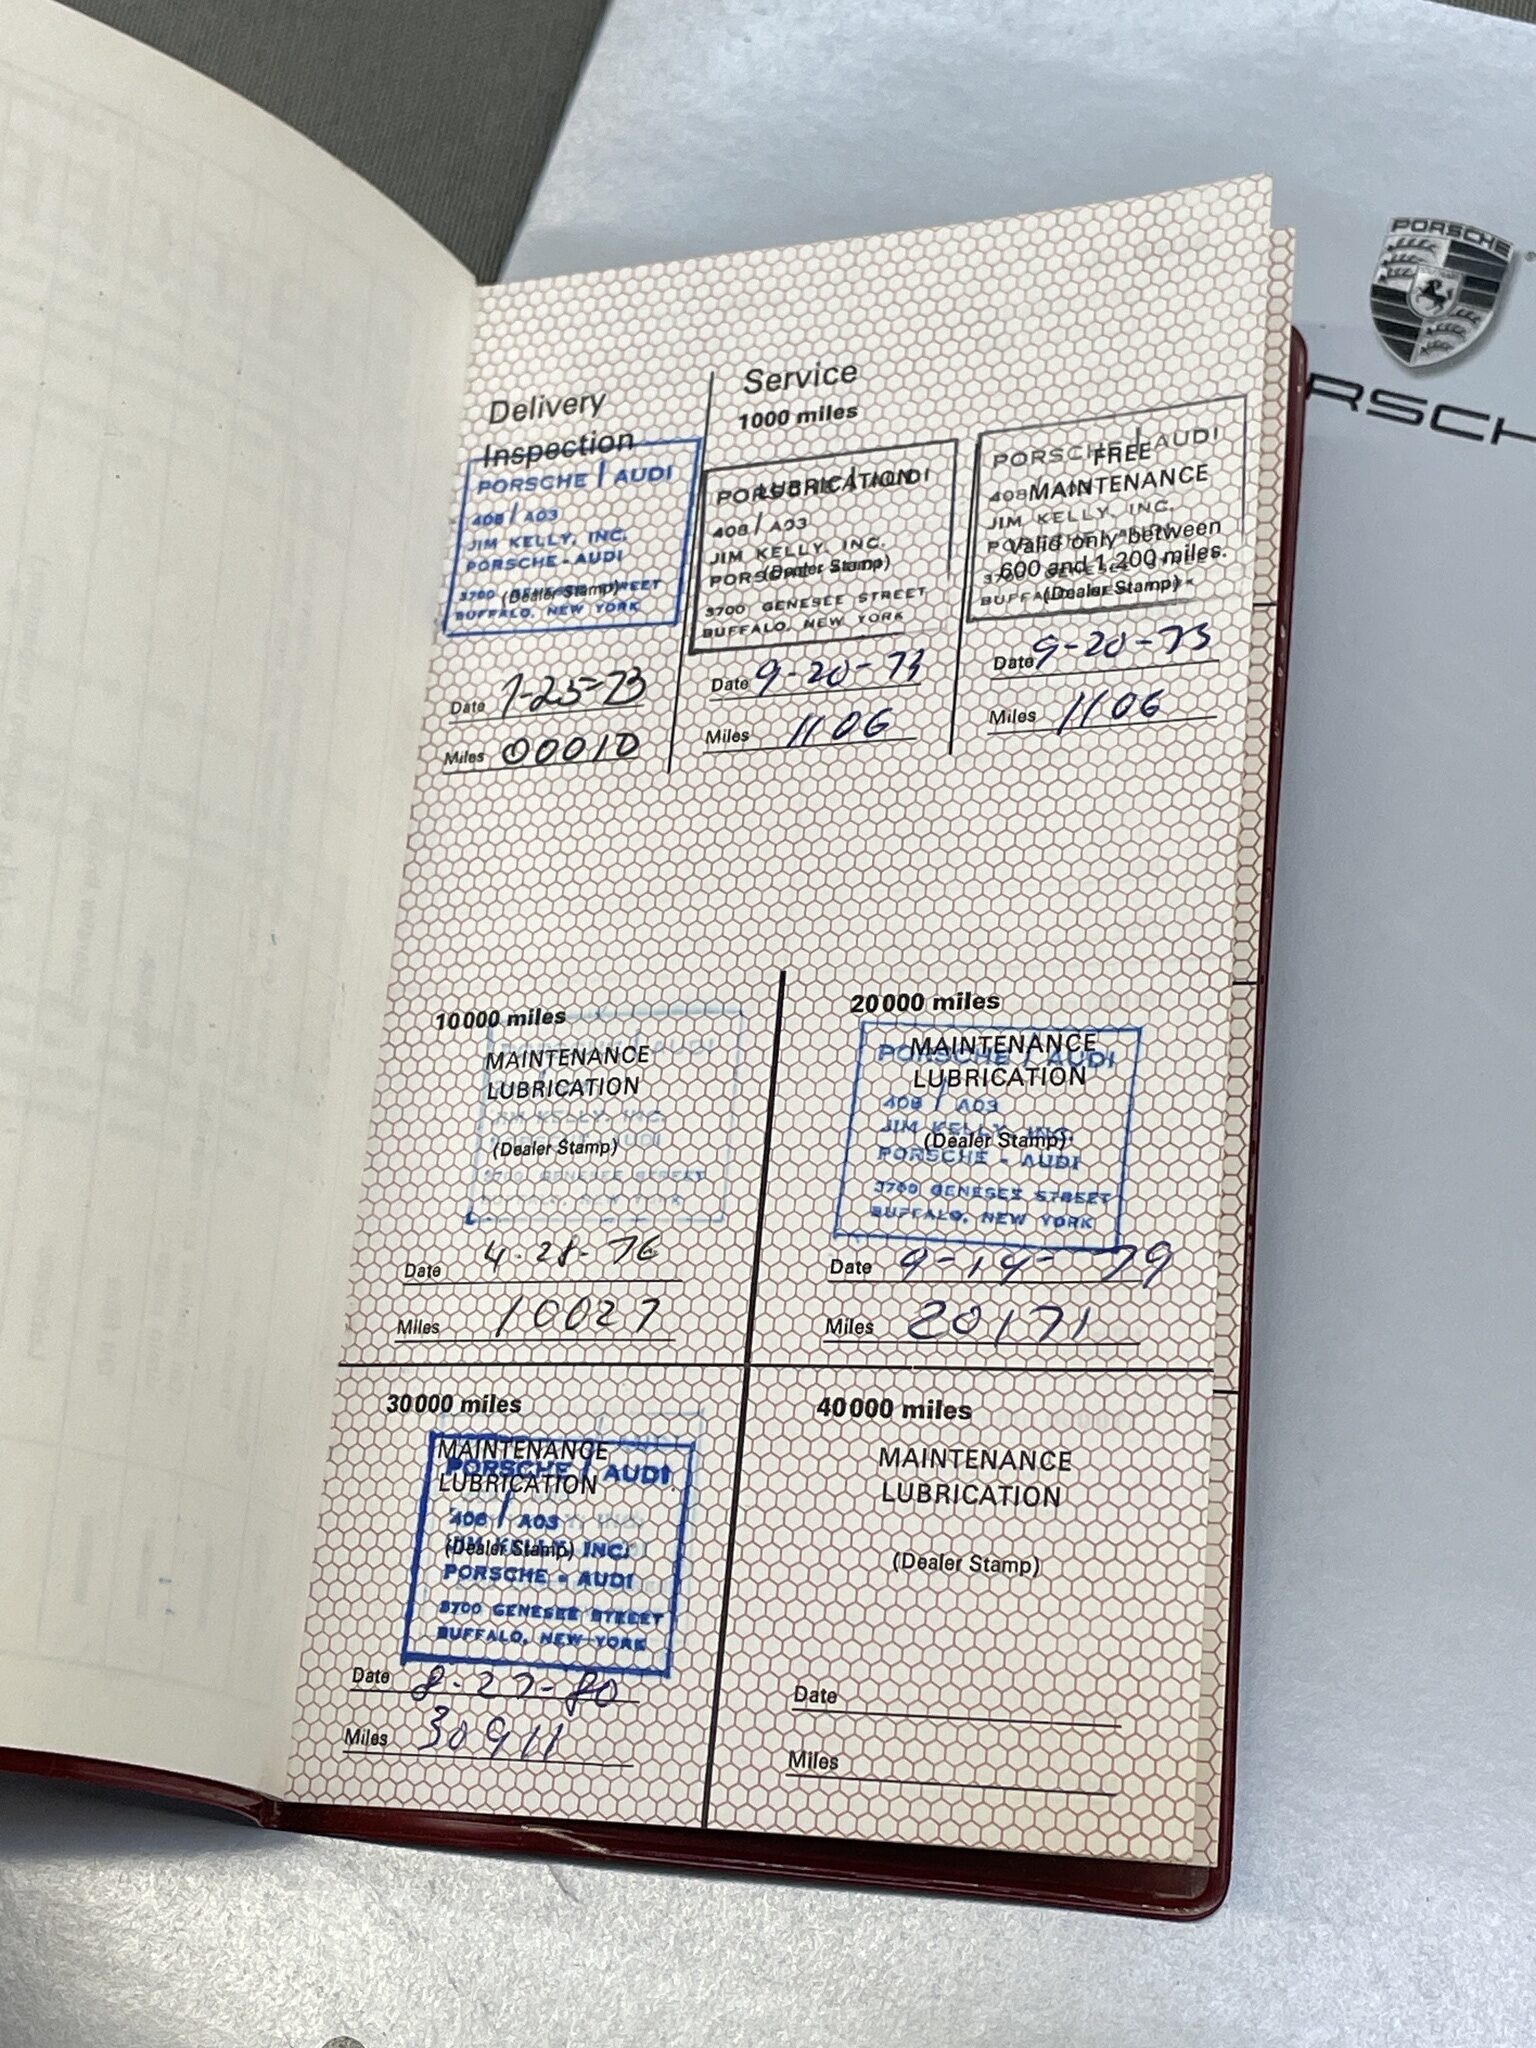 PORSCHE
RSCH
Delivery
Inspection
PORSCHE / AUDI
408 / A03
JIM KELLY, INC.
PORSCHE - AUDI
3700 GENESEE STREET
(Dealer Stamp)
BUFFALO, NEW YORK
Date 7-25-73
Miles 00010
Service
1000 miles
LUBRICATION
PORSCHE / AUDI
408 / A03
JIM KELLY, INC.
PORSCHE - AUDI
(Dealer Stamp)
3700 GENESEE STREET
BUFFALO, NEW YORK
Date 9-20-73
Miles 1106
PORSCHE / AUDI
FREE
408
MAINTENANCE
JIM KELLY, INC.
PORSCHE - AUDI
Valid only between
600 and 1,200 miles.
3700 GENESEE STREET
(Dealer Stamp)
BUFFALO, NEW YORK
Date 9-20-73
Miles 1106
10000 miles
PORSCHE / AUDI
MAINTENANCE
LUBRICATION
JIM KELLY, INC.
PORSCHE - AUDI
(Dealer Stamp)
3700 GENESEE STREET
BUFFALO, NEW YORK
Date 4-28-76
Miles 10027
20000 miles
MAINTENANCE
PORSCHE / AUDI
LUBRICATION
408 / A03
JIM KELLY, INC.
(Dealer Stamp)
PORSCHE - AUDI
3700 GENESEE STREET
BUFFALO, NEW YORK
Date 9-14-79
Miles 20171
30000 miles
MAINTENANCE
PORSCHE / AUDI
LUBRICATION
408 / A03
JIM KELLY, INC.
(Dealer Stamp)
PORSCHE - AUDI
3700 GENESEE STREET
BUFFALO, NEW YORK
Date 8-27-80
Miles 30911
40000 miles
MAINTENANCE
LUBRICATION
(Dealer Stamp)
Date
Miles